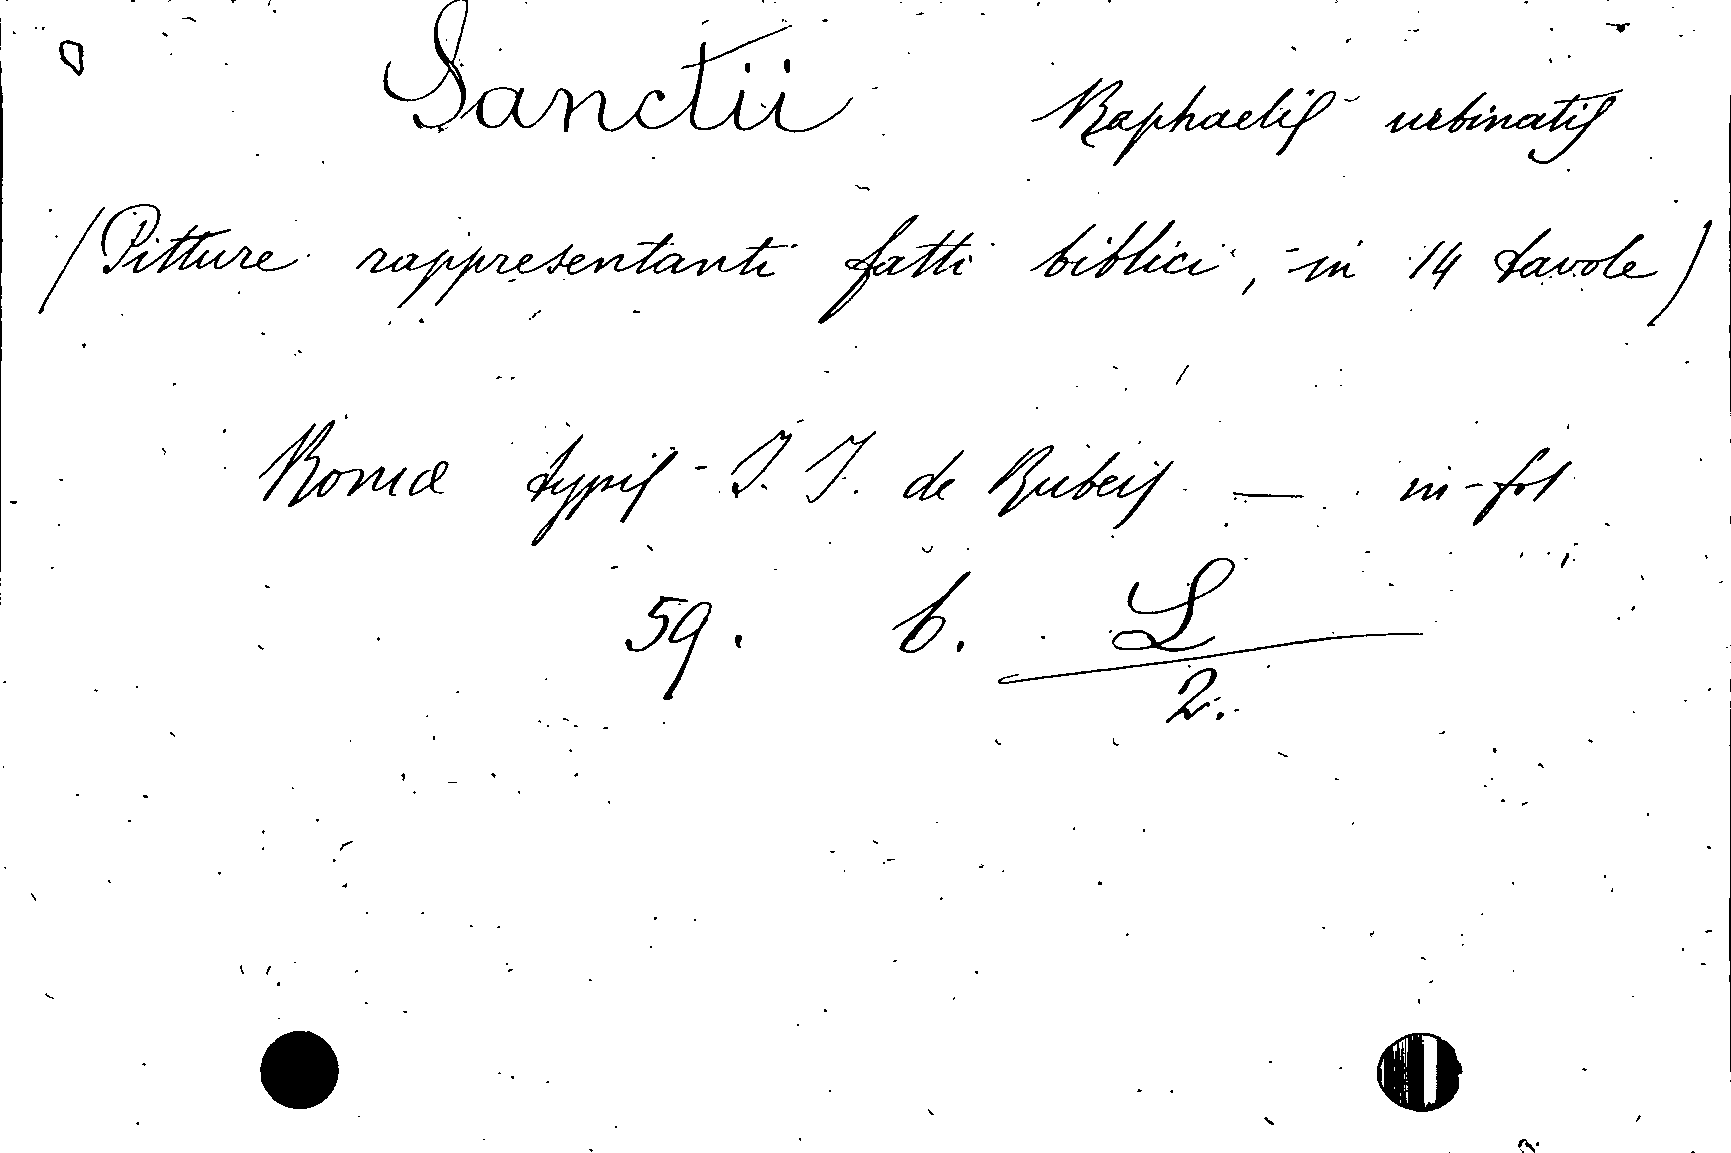 Sanctii Raphaelis urbinatis
(Pitture rappresentanti fatti biblici, in 14 tavole)
Romæ typis J. J. de Rubeis — in-fol
59. b. L
2.